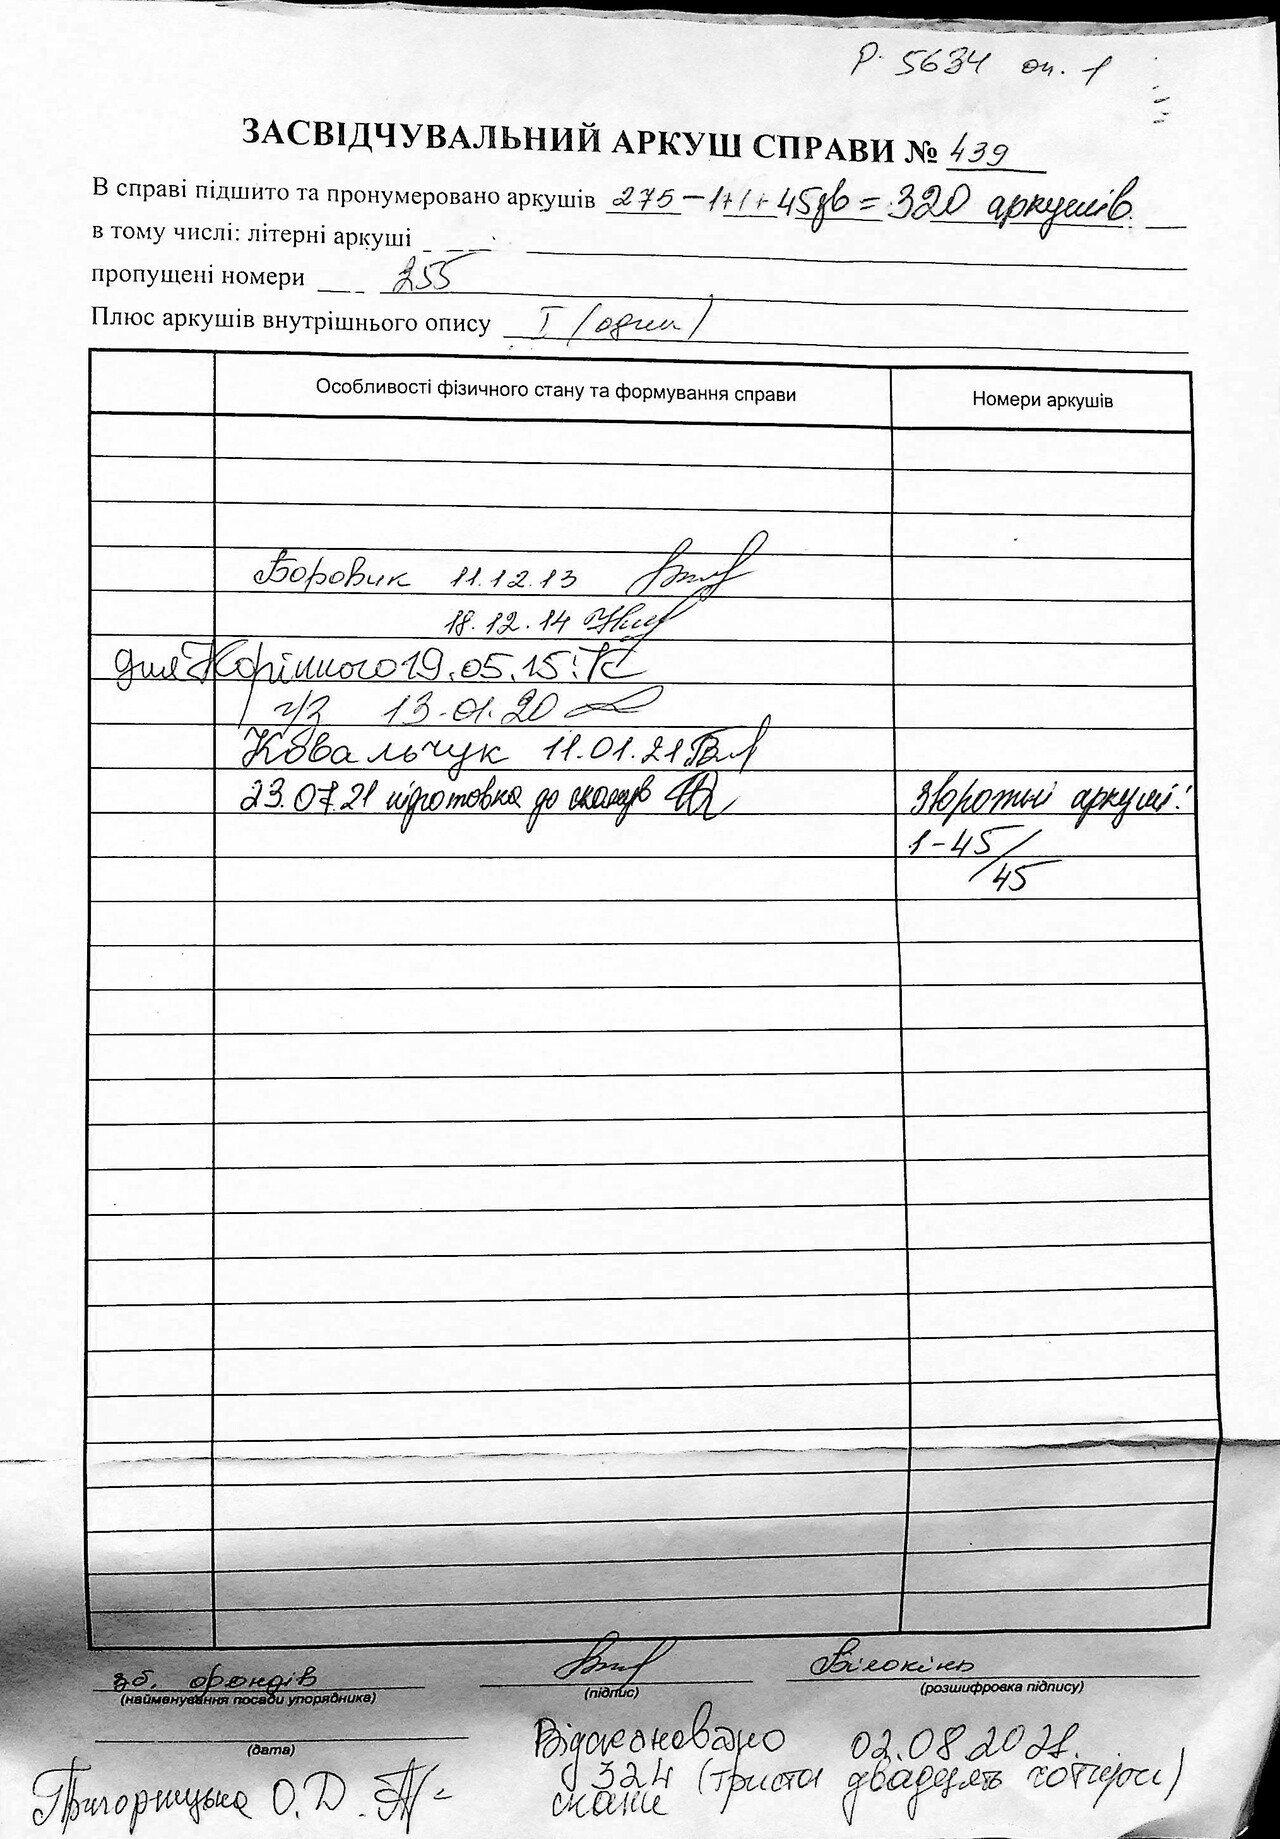 Р. 5634 оп. 1
ЗАСВІДЧУВАЛЬНИЙ АРКУШ СПРАВИ № 439
В справі підшито та пронумеровано аркушів 275-1+1+45зв = 320 аркушів.
в тому числі: літерні аркуші
пропущені номери 255
Плюс аркушів внутрішнього опису 1 (один)
Особливості фізичного стану та формування справи
Номери аркушів
Боровик 11.12.13
18.12.14
для Корінного 19.05.15
ч/з 13.01.20
Ковальчук 11.01.21
23.07.21 підготовка до сканув
зворотні аркуші:
1-45/45
зб. фондів
Білокінь
(найменування посади упорядника)
(підпис)
(розшифровка підпису)
(дата)
Відскановано 02.08.2021.
324 (триста двадцять чотири)
скани
Пригорницька О.Д.